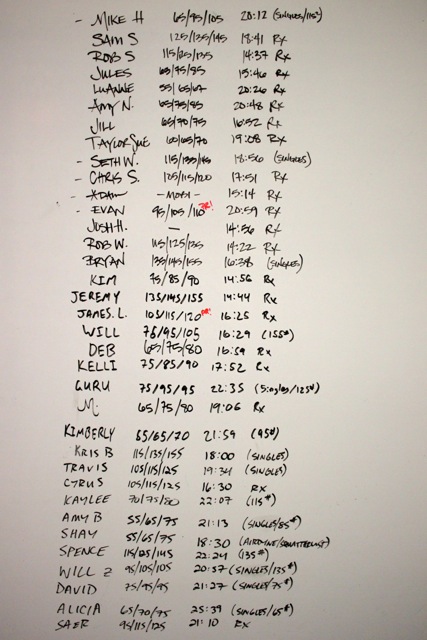 - MIKE H 65/95/105 20:12 (SINGLES/115#)
SAM S 125/135/145 18:41 Rx
ROB S 115/125/135 14:37 Rx
JULES 65/75/85 15:46 Rx
LUANNE 55/65/67 20:26 Rx
AMY N. 65/75/85 20:48 Rx
JILL 60/70/75 16:52 Rx
TAYLOR SUE 60/65/70 19:08 Rx
- SETH W. 115/135/145 18:56 (SINGLES)
- CHRIS S. 105/115/120 17:51 Rx
- ADAM - MOBI - 15:14 Rx
- EVAN 95/105/110 PR! 20:59 Rx
JOSH H. — 14:56 Rx
ROB W. 115/125/135 14:22 Rx
BRYAN 135/145/155 16:38 (SINGLES)
KIM 75/85/90 14:56 Rx
JEREMY 135/145/155 14:44 Rx
JAMES. L. 105/115/120 PR! 16:25 Rx
WILL 75/95/105 16:29 (155#)
DEB 65/75/80 16:59 Rx
KELLI 75/85/90 17:52 Rx
GURU 75/95/95 22:35 (Singles/125#)
M. 65/75/80 19:06 Rx
KIMBERLY 55/65/70 21:59 (95#)
KRIS B 115/135/155 18:00 (SINGLES)
TRAVIS 105/115/125 19:34 (SINGLES)
CYRUS 105/115/125 16:30 Rx
KAYLEE 70/75/80 22:07 (115#)
AMY B 55/65/75 21:13 (SINGLES/85#)
SHAY 55/65/75 18:30 (AIRDYNE/)
SPENCE 115/125/145 22:24 (135#)
WILL Z 95/105/105 20:57 (SINGLES/135#)
DAVID 75/95/95 21:27 (SINGLES/75#)
ALICIA 65/70/75 25:39 (SINGLES/65#)
SAER 95/115/125 21:10 Rx